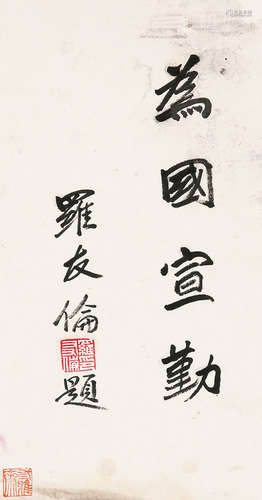 為國宣勤
羅友倫題